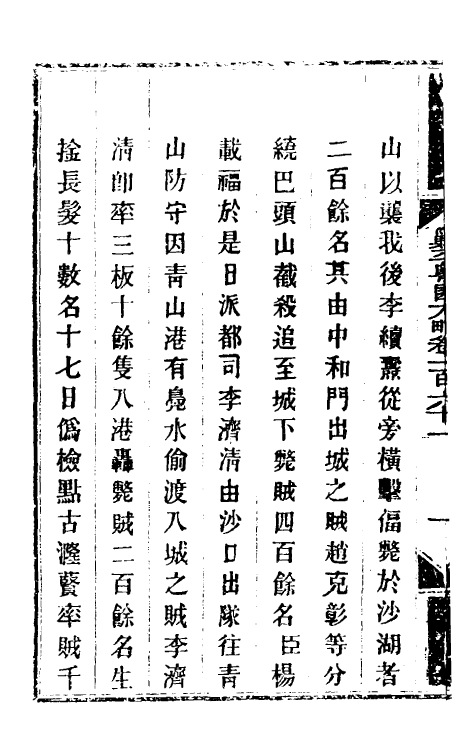 山以襲我後李續燾從旁橫擊偪斃於沙湖者
二百餘名其由中和門出城之賊趙克彰等分
繞巴頭山截殺追至城下斃賊四百餘名臣楊
載福於是日派都司李濟清由沙口出隊往青
山防守因青山港有鳧水偷渡入城之賊李濟
清卽率三板十餘隻入港轟斃賊二百餘名生
擒長髮十數名十七日僞檢點古隆賢率賊千